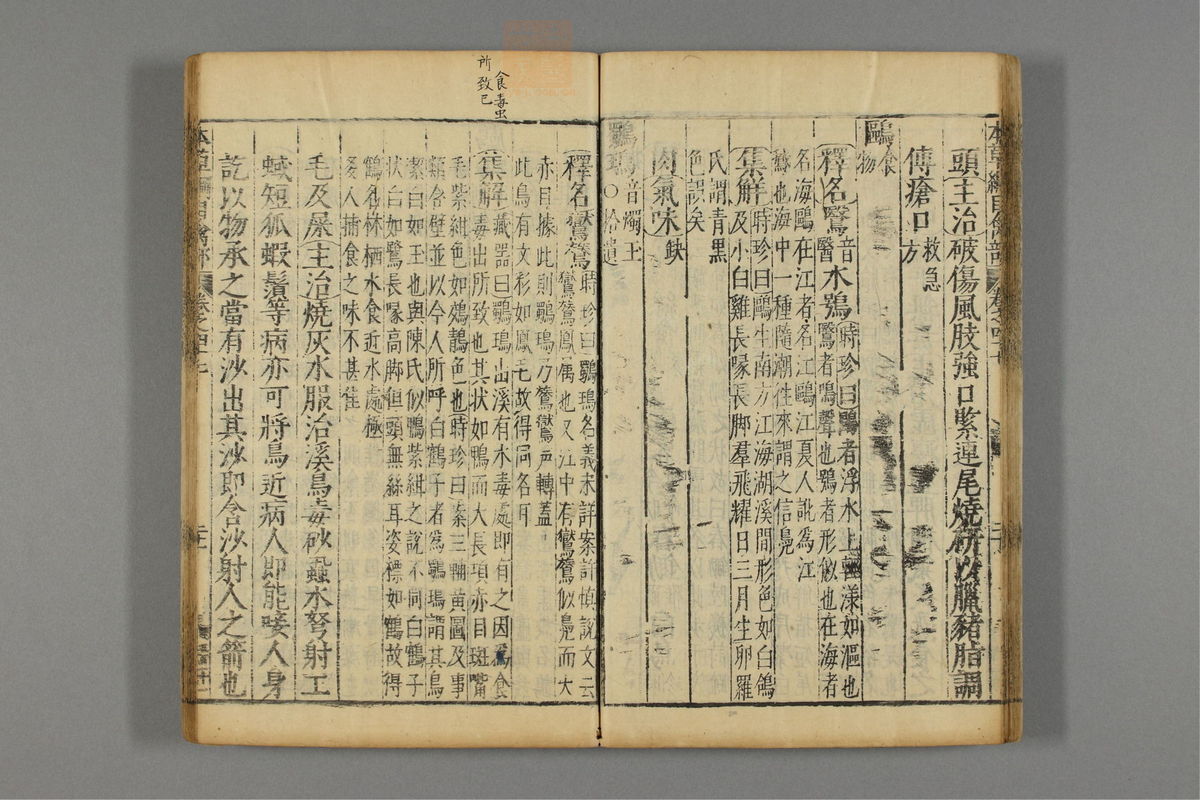 本草綱目禽部
卷之四十七
頭主治破傷風肢強口緊連尾燒研以臘豬脂調
傅瘡口救急方
鷗食物
釋名鷖音醫水鴞時珍曰鷗者浮水上輕漾如漚也
鷖者鳴聲也鴞者形似也在海者
名海鷗在江者名江鷗江夏人訛為江
鵝也海中一種隨潮往來謂之信鳧
集解時珍曰鷗生南方江海湖溪間形色如白鴿
及小白雞長喙長脚羣飛耀日三月生卵羅
氏謂青黑
色誤矣
肉氣味缺
鸀鳿音燭玉○拾遺
食毒虫
所致已
釋名鸑鷟時珍曰鸀鳿名義未詳案許慎說文云
鸑鷟鳳屬也又江中有鸑鷟似鳧而大
赤目據此則鸀鳿乃鷟鸑声轉蓋
此鳥有文彩如鳳毛故得同名耳
集解藏器曰鸀鳿出溪有水毒處即有之因為食
毒出所致也其狀如鴨而大長項赤目斑嘴
毛紫紺色如鵁鶄色也時珍曰案三輔黄圖及事
類合璧並以今人所呼白鶴子者為鸀鳿謂其鳥
潔白如玉也與陳氏似鴨紫紺之說不同白鶴子
狀白如鷺長喙高脚但頭無絲耳姿標如鶴故得
鶴名林栖水食近水處極
多人捕食之味不甚佳
毛及屎主治燒灰水服治溪鳥毒砂蝨水弩射工
蜮短狐蝦鬚等病亦可將鳥近病人即能唼人身
訖以物承之當有沙出其沙即含沙射人之箭也
本草綱目禽部
卷之四十七